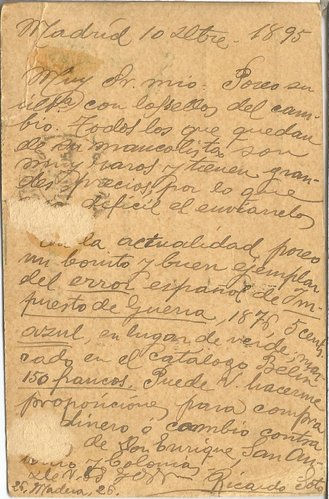 Madrid 10 8bre. 1895
Muy Sr. mio. Poseo su
con los sellos del cam-
bio. Todos los que quedan
de su mancolista son
muy raros y tienen gran-
des precios, por lo que
difícil el enviarselos
la actualidad, poseo
un bonito y buen ejemplar
del error español de Im-
puesto de Guerra, 1876, 5 cent.
azul, en lugar de verde, mar-
cado en el Catálogo
150 francos. Puede V. hacerme
proporciones para compra
dinero o cambio contra
de Don Enrique San
y Colonias
De V.
Ricardo
26, Madera, 26.